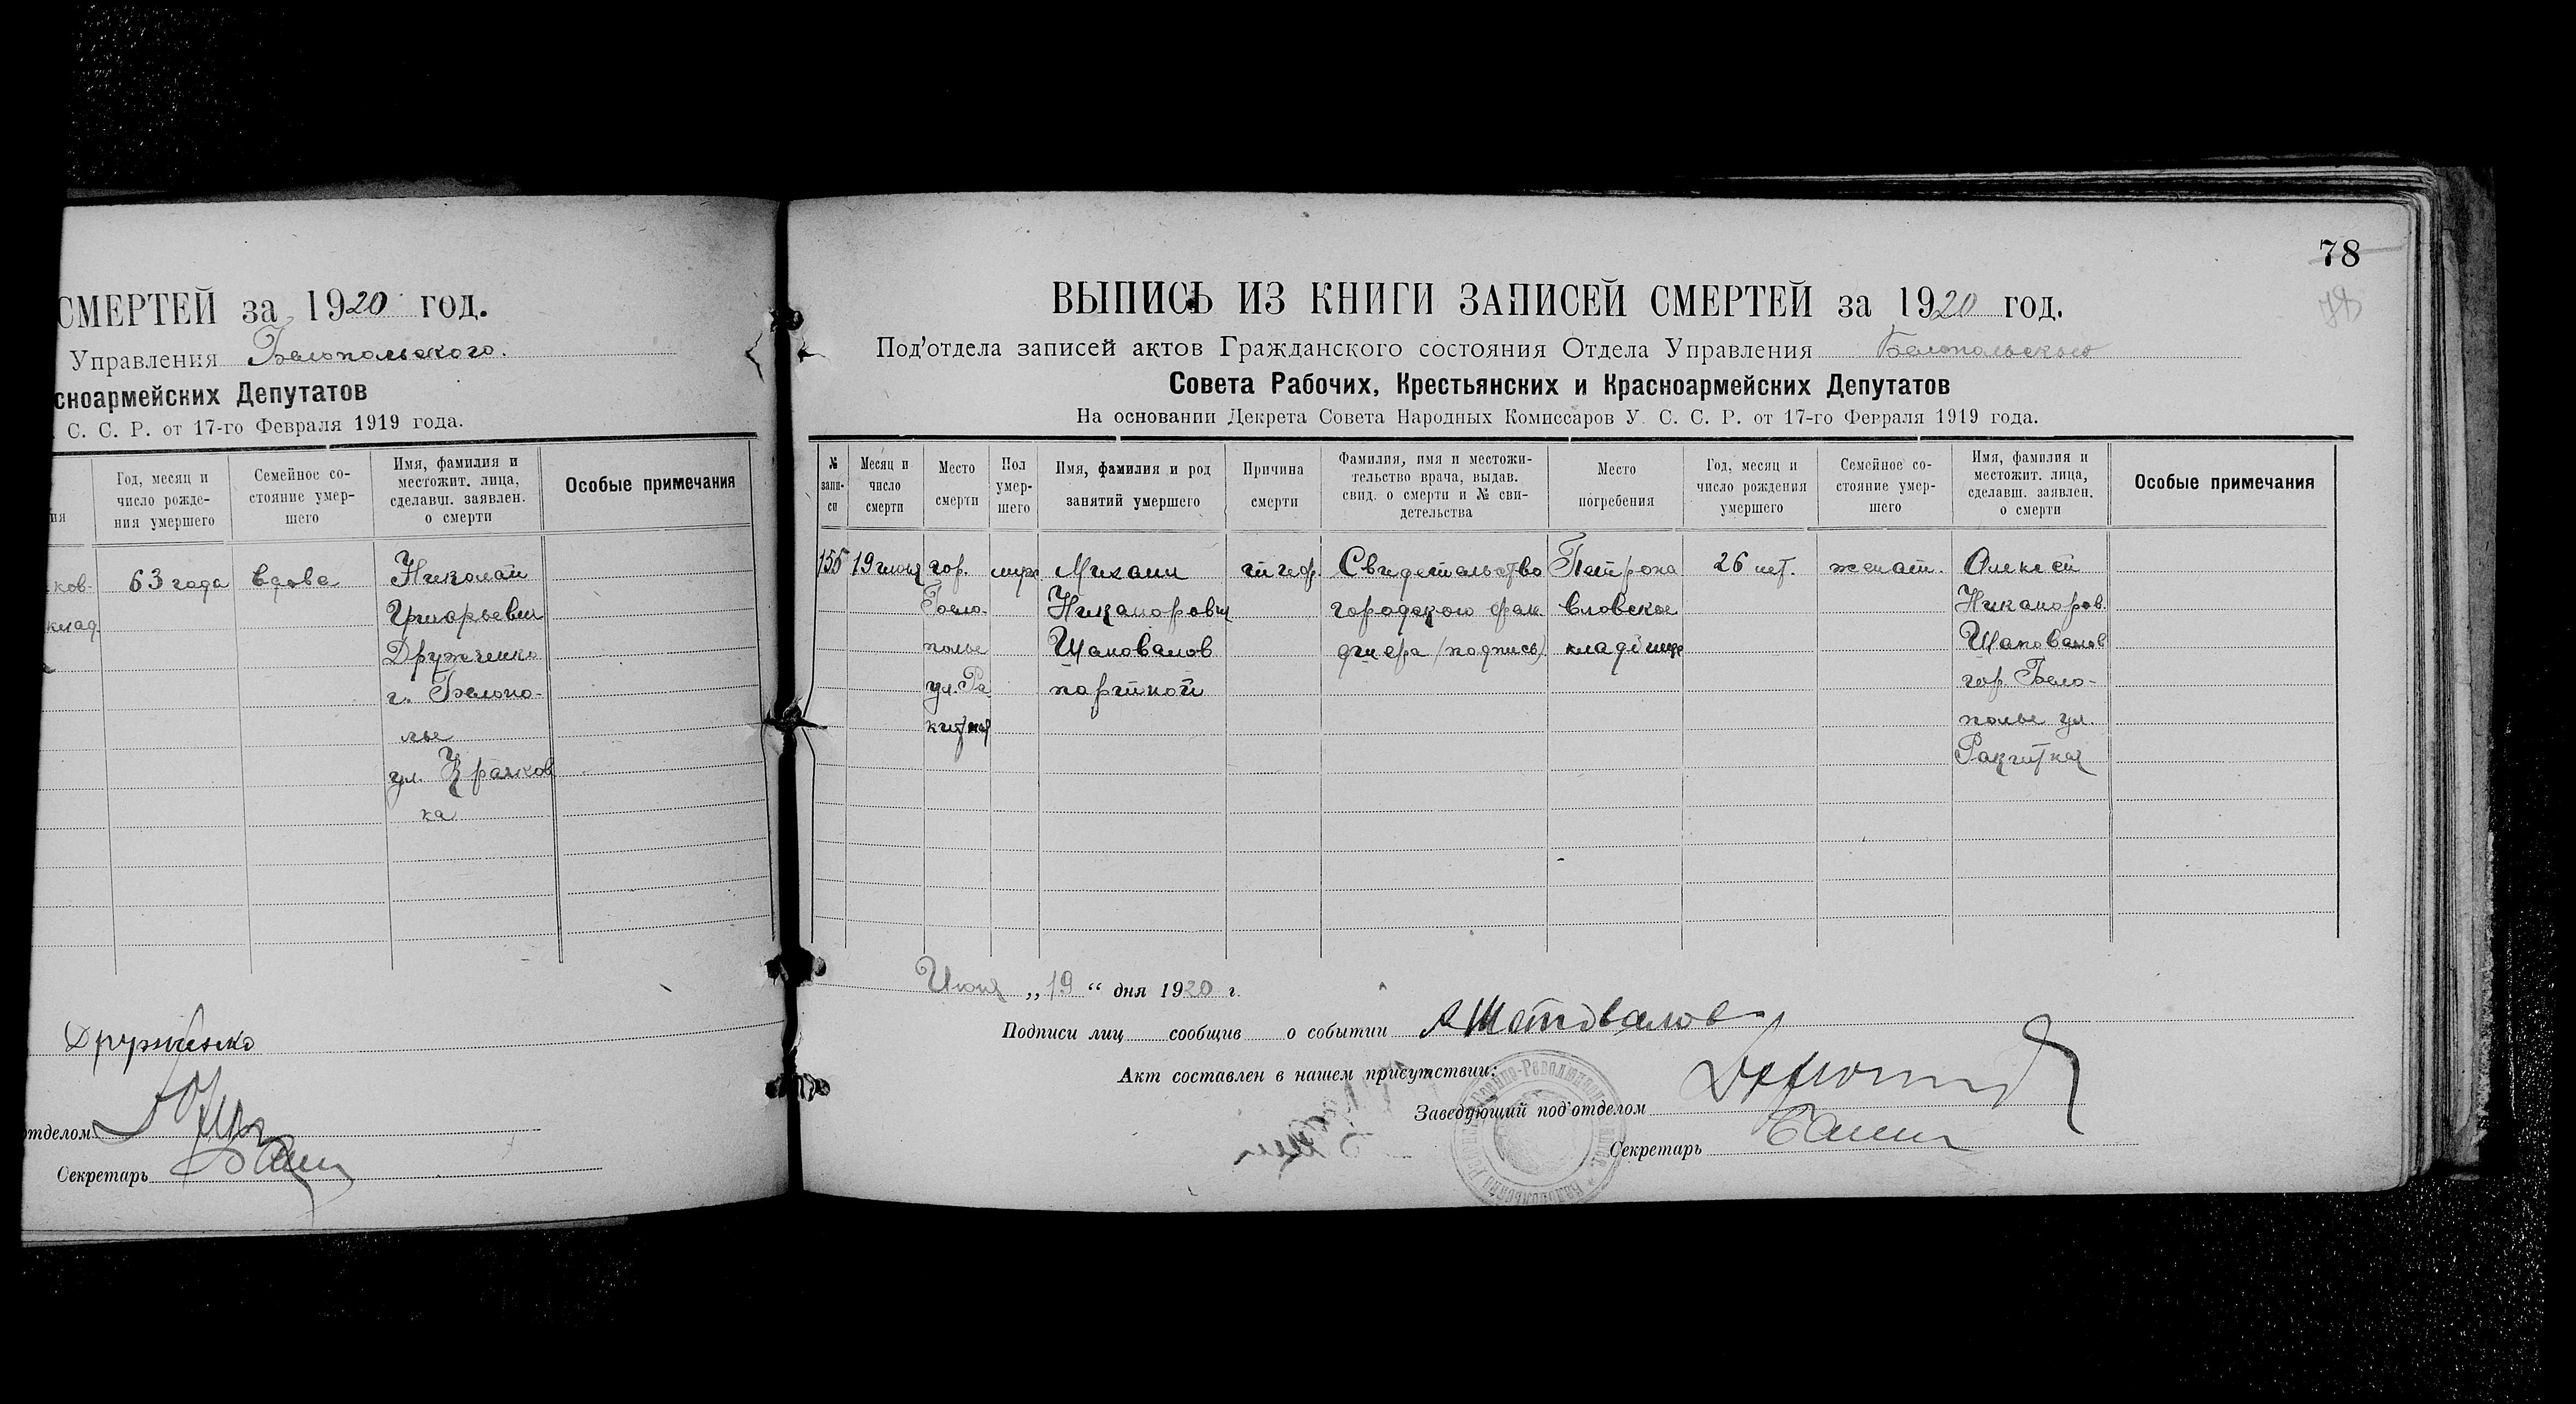 СМЕРТЕЙ за 1920 год.
Управления Белопольского.
сноармейских Депутатов
С. С. Р. от 17-го Февраля 1919 года.
Год, месяц и число рожде- ния умершего
Семейное со- стояние умер- шего
Имя, фамилия и местожит. лица, сделавш. заявлен. о смерти
Особые примечания
ков- 63 года вдова Николай
клад. Григорьевич
Дружченко
г. Белопо-
лье
ул.
ка
Дружченко
отделом
Секретарь
78
78
ВЫПИСЬ ИЗ КНИГИ ЗАПИСЕЙ СМЕРТЕЙ за 1920 год.
Под'отдела записей актов Гражданского состояния Отдела Управления Белопольского
Совета Рабочих, Крестьянских и Красноармейских Депутатов
На основании Декрета Совета Народных Комиссаров У. С. С. Р. от 17-го Февраля 1919 года.
№ запи- си
Месяц и число смерти
Место смерти
Пол умер- шего
Имя, фамилия и род занятий умершего
Причина смерти
Фамилия, имя и местожи- тельство врача, выдав. свид. о смерти и № сви- детельства
Место погребения
Год, месяц и число рождения умершего
Семейное со- стояние умер- шего
Имя, фамилия и местожит. лица, сделавш. заявлен. о смерти
Особые примечания
155 19 июня гор. муж Михаил тиф. Свидетельство Петропа 26 лет. женат. Алексей
Бело- Никанорович городского фель вловское Никаноров.
полье Шаповалов дшера (подпись) кладбище Шаповалов
ул. Ра портной гор. Бело-
китная полье ул.
Ракитная
Июня „19“ дня 1920 г.
Подписи лиц сообщив о событии А Шаповалов
Акт составлен в нашем присутствии:
Заведующий под'отделом
Секретарь